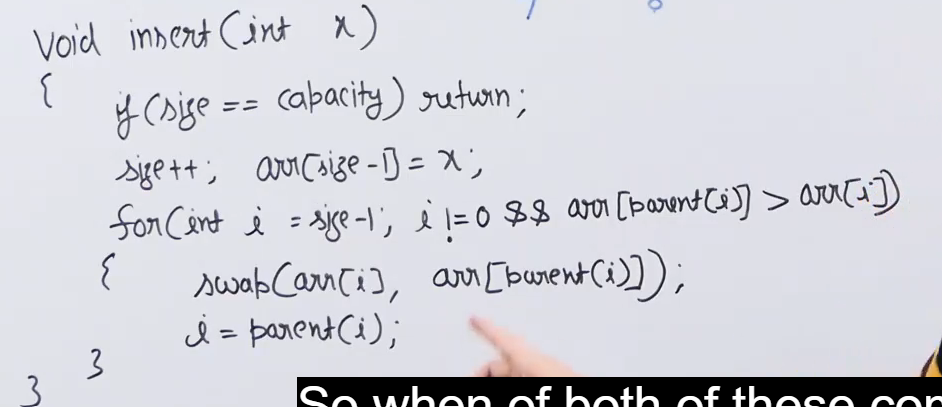 void insert(int x)
{
if(size == capacity) return;
size++; arr[size-1] = x;
for(int i = size-1; i != 0 && arr[parent(i)] > arr[i])
{
swap(arr[i], arr[parent(i)]);
i = parent(i);
}
}
So when of both of these con